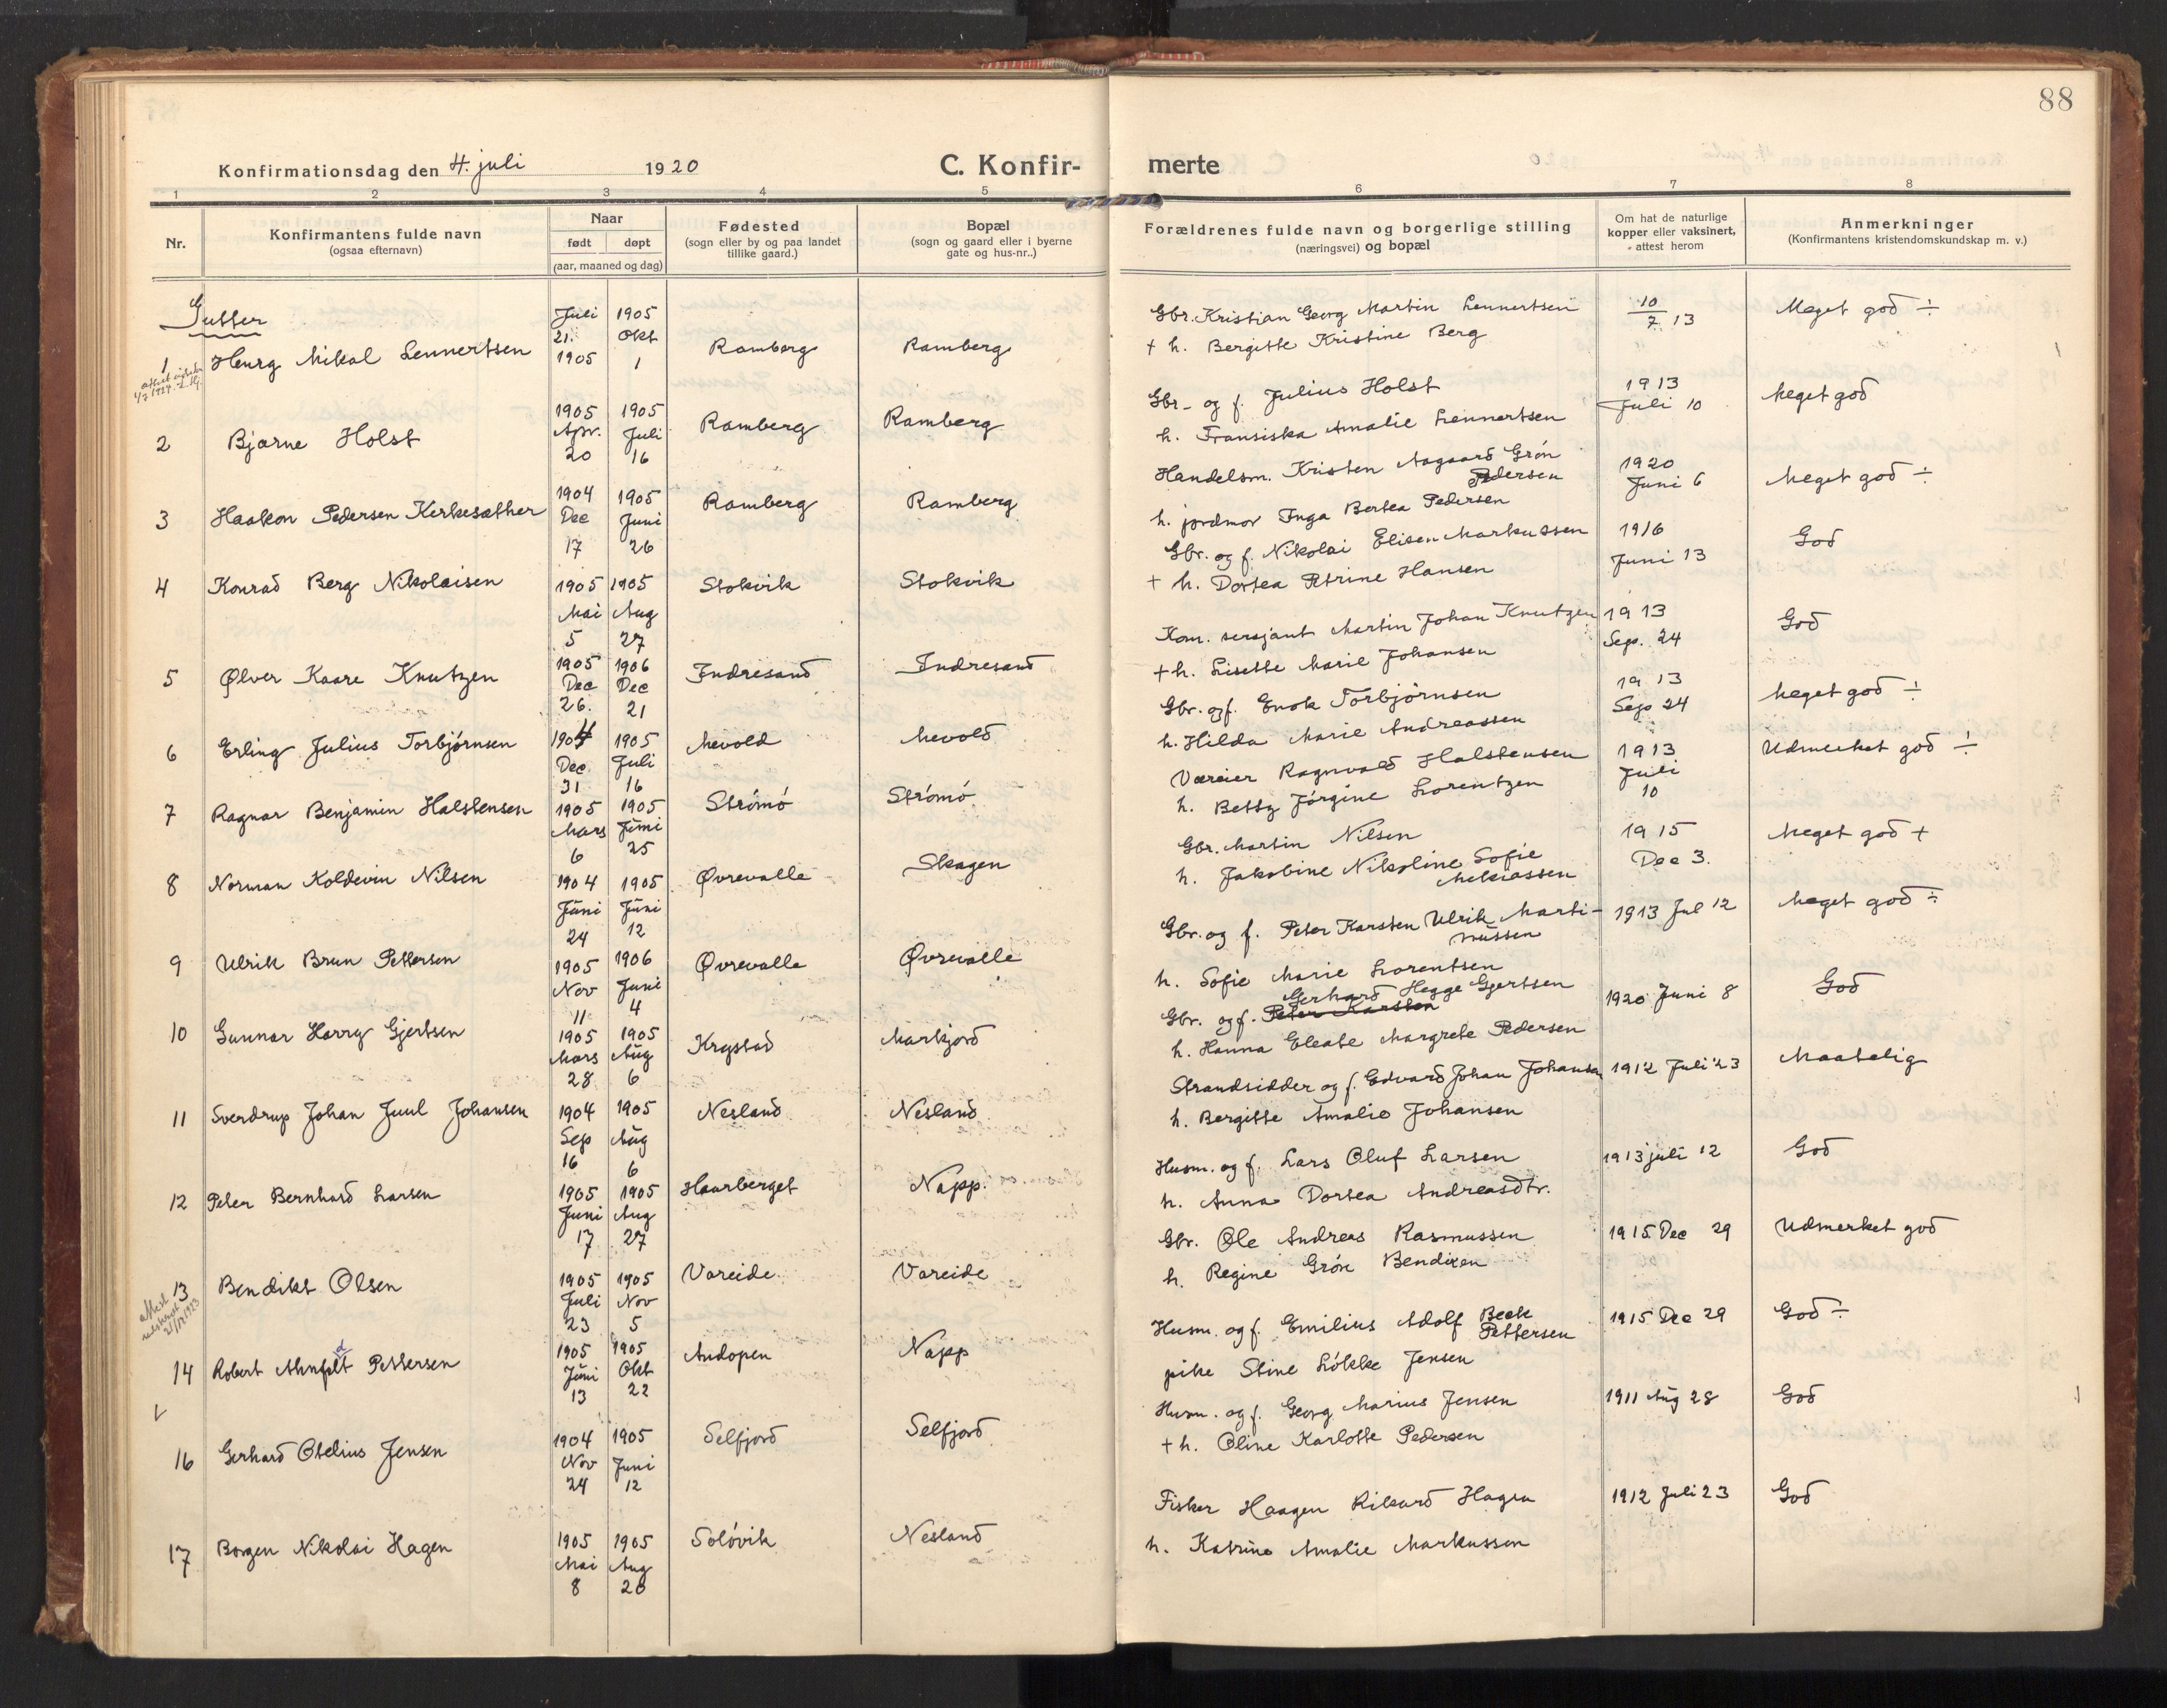 88
Konfirmationsdag den 4. juli 1920
C. Konfir-
merte
1 2 3 4 5 6 7 8
Nr.
Konfirmantens fulde navn
(ogsaa efternavn)
Naar
født døpt
(aar, maaned og dag)
Fødested
(sogn eller by og paa landet
tillike gaard.)
Bopæl
(sogn og gaard eller i byerne
gate og hus-nr..)
Forældrenes fulde navn og borgerlige stilling
(næringsvei) og bopæl
Om hat de naturlige
kopper eller vaksinert,
attest herom
Anmerkninger
(Konfirmantens kristendomskundskap m. v.)
Gutter
1 Henrg Mikal Lennertsen
Juli 21. 1905
1905 Okt 1
Ramberg
Ramberg
Gbr. Kristian Georg Martin Lennertsen
+ h. Bergitte Kristine Berg
10/7 13
Meget god ÷
2 Bjarne Holst
1905 Apr. 20
1905 Juli 16
Ramberg
Ramberg
Gbr- og f. Julius Holst
h. Fransiska Amalie Lennertsen
1913 Juli 10
Meget god
3 Haakon Pedersen Kirkesæther
1904 Dec 17
1905 Juni 26
Ramberg
Ramberg
Handelsm. Kristen Aagaard Grøn
Pedersen
h. jordmor Inga Bertea Pedersen
1920 Juni 6
Meget god ÷
4 Konrad Berg Nikolaisen
1905 Mai 5
1905 Aug 27
Stokvik
Stokvik
Gbr. og f. Nikolai Elisen Markussen
+ h. Dortea Petrine Hansen
1916 Juni 13
God
5 Ølver Kaare Knutzen
1905 Dec 26.
1906 Dec 21
Indresand
Indresand
Kom. sersjant Martin Johan Knutzen
+ h. Lisette Marie Johansen
1913 Sep. 24
God
6 Erling Julius Torbjørnsen
1904 Dec. 31
1905 Juli 16
Mevold
Mevold
Gbr. og f. Enok Torbjørnsen
h. Hilda Marie Andreassen
1913 Sep 24
Meget god ÷
7 Ragnar Benjamin Halstensen
1905 Mars 6
1905 Juni 25
Strømø
Strømø
Væreier Ragnvald Halstensen
h. Betty Jørgine Lorentzen
1913 Juli 10
Udmerket god ÷
8 Norman Koldevin Nilsen
1904 Juni 24
1905 Juni 12
Øvrevalle
Skagen
Gbr. Martin Nilsen
h. Jakobine Nikoline Sofie
Mikiassen
1915 Dec 3.
Meget god +
9 Ulrik Brun Pettersen
1905 Nov 11
1906 Juni 4
Øvrevalle
Øvrevalle
Gbr. og f. Peter Karsten Ulrik Marti-
nussen
h. Sofie Marie Lorentsen
1913 Jul 12
Meget god ÷
10 Gunnar Harry Gjertsen
1905 Mars 28
1905 Aug 6
Krystad
Markjord
Gerhard Hegge Gjertsen
Gbr. og f. Peter Karsten
h. Hanna Eleate Margrete Pedersen
1920 Juni 8
God
11 Sverdrup Johan Juul Johansen
1904 Sep 16
1905 Aug 6
Nesland
Nesland
Strandsidder og f. Edvard Johan Johansen
h. Bergitte Amalie Johansen
1912 Juli 23
Maatelig
12 Peter Bernhard Larsen
1905 Juni 17
1905 Aug 27
Haarberget
Napp.
Husm. og f. Lars Oluf Larsen
h. Anna Dortea Andreasdtr.
1913 juli 12
God
13 Bendikt Olsen
1905 Juli 23
1905 Nov 5
Vareide
Vareide
Gbr. Ole Andreas Rasmussen
h. Regine Grøn Bendixen
1915 Dec 29
Udmerket god
14 Robert Pettersen
1905 Juni 13
1905 Okt 22
Andopen
Napp
Husm. og f. Emilius Adolf Beck
Pettersen
pike Stine Løkke Jensen
1915 Dec 29
God ÷
16 Gerhard Otelius Jensen
1904 Nov 24
1905 Juni 12
Selfjord
Selfjord
Husm. og f. Georg Marius Jensen
+ h. Oline Karlotte Pedersen
1911 Aug 28
God
17 Borgen Nikolai Hagen
1905 Mai 8
1905 Aug 20
Soløvik
Nesland
Fisker Haagen Rikard Hagen
h. Katrine Amalie Markussen
1912 Juli 23
God